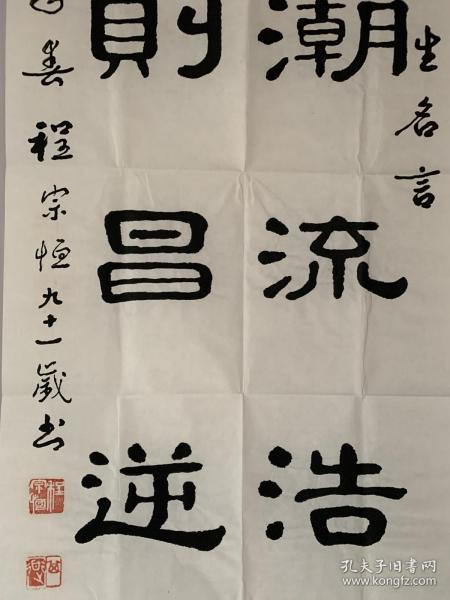 生名言
潮流浩
则昌逆
春程宗恒九十一岁书
孔夫子旧书网
www.kongfz.com